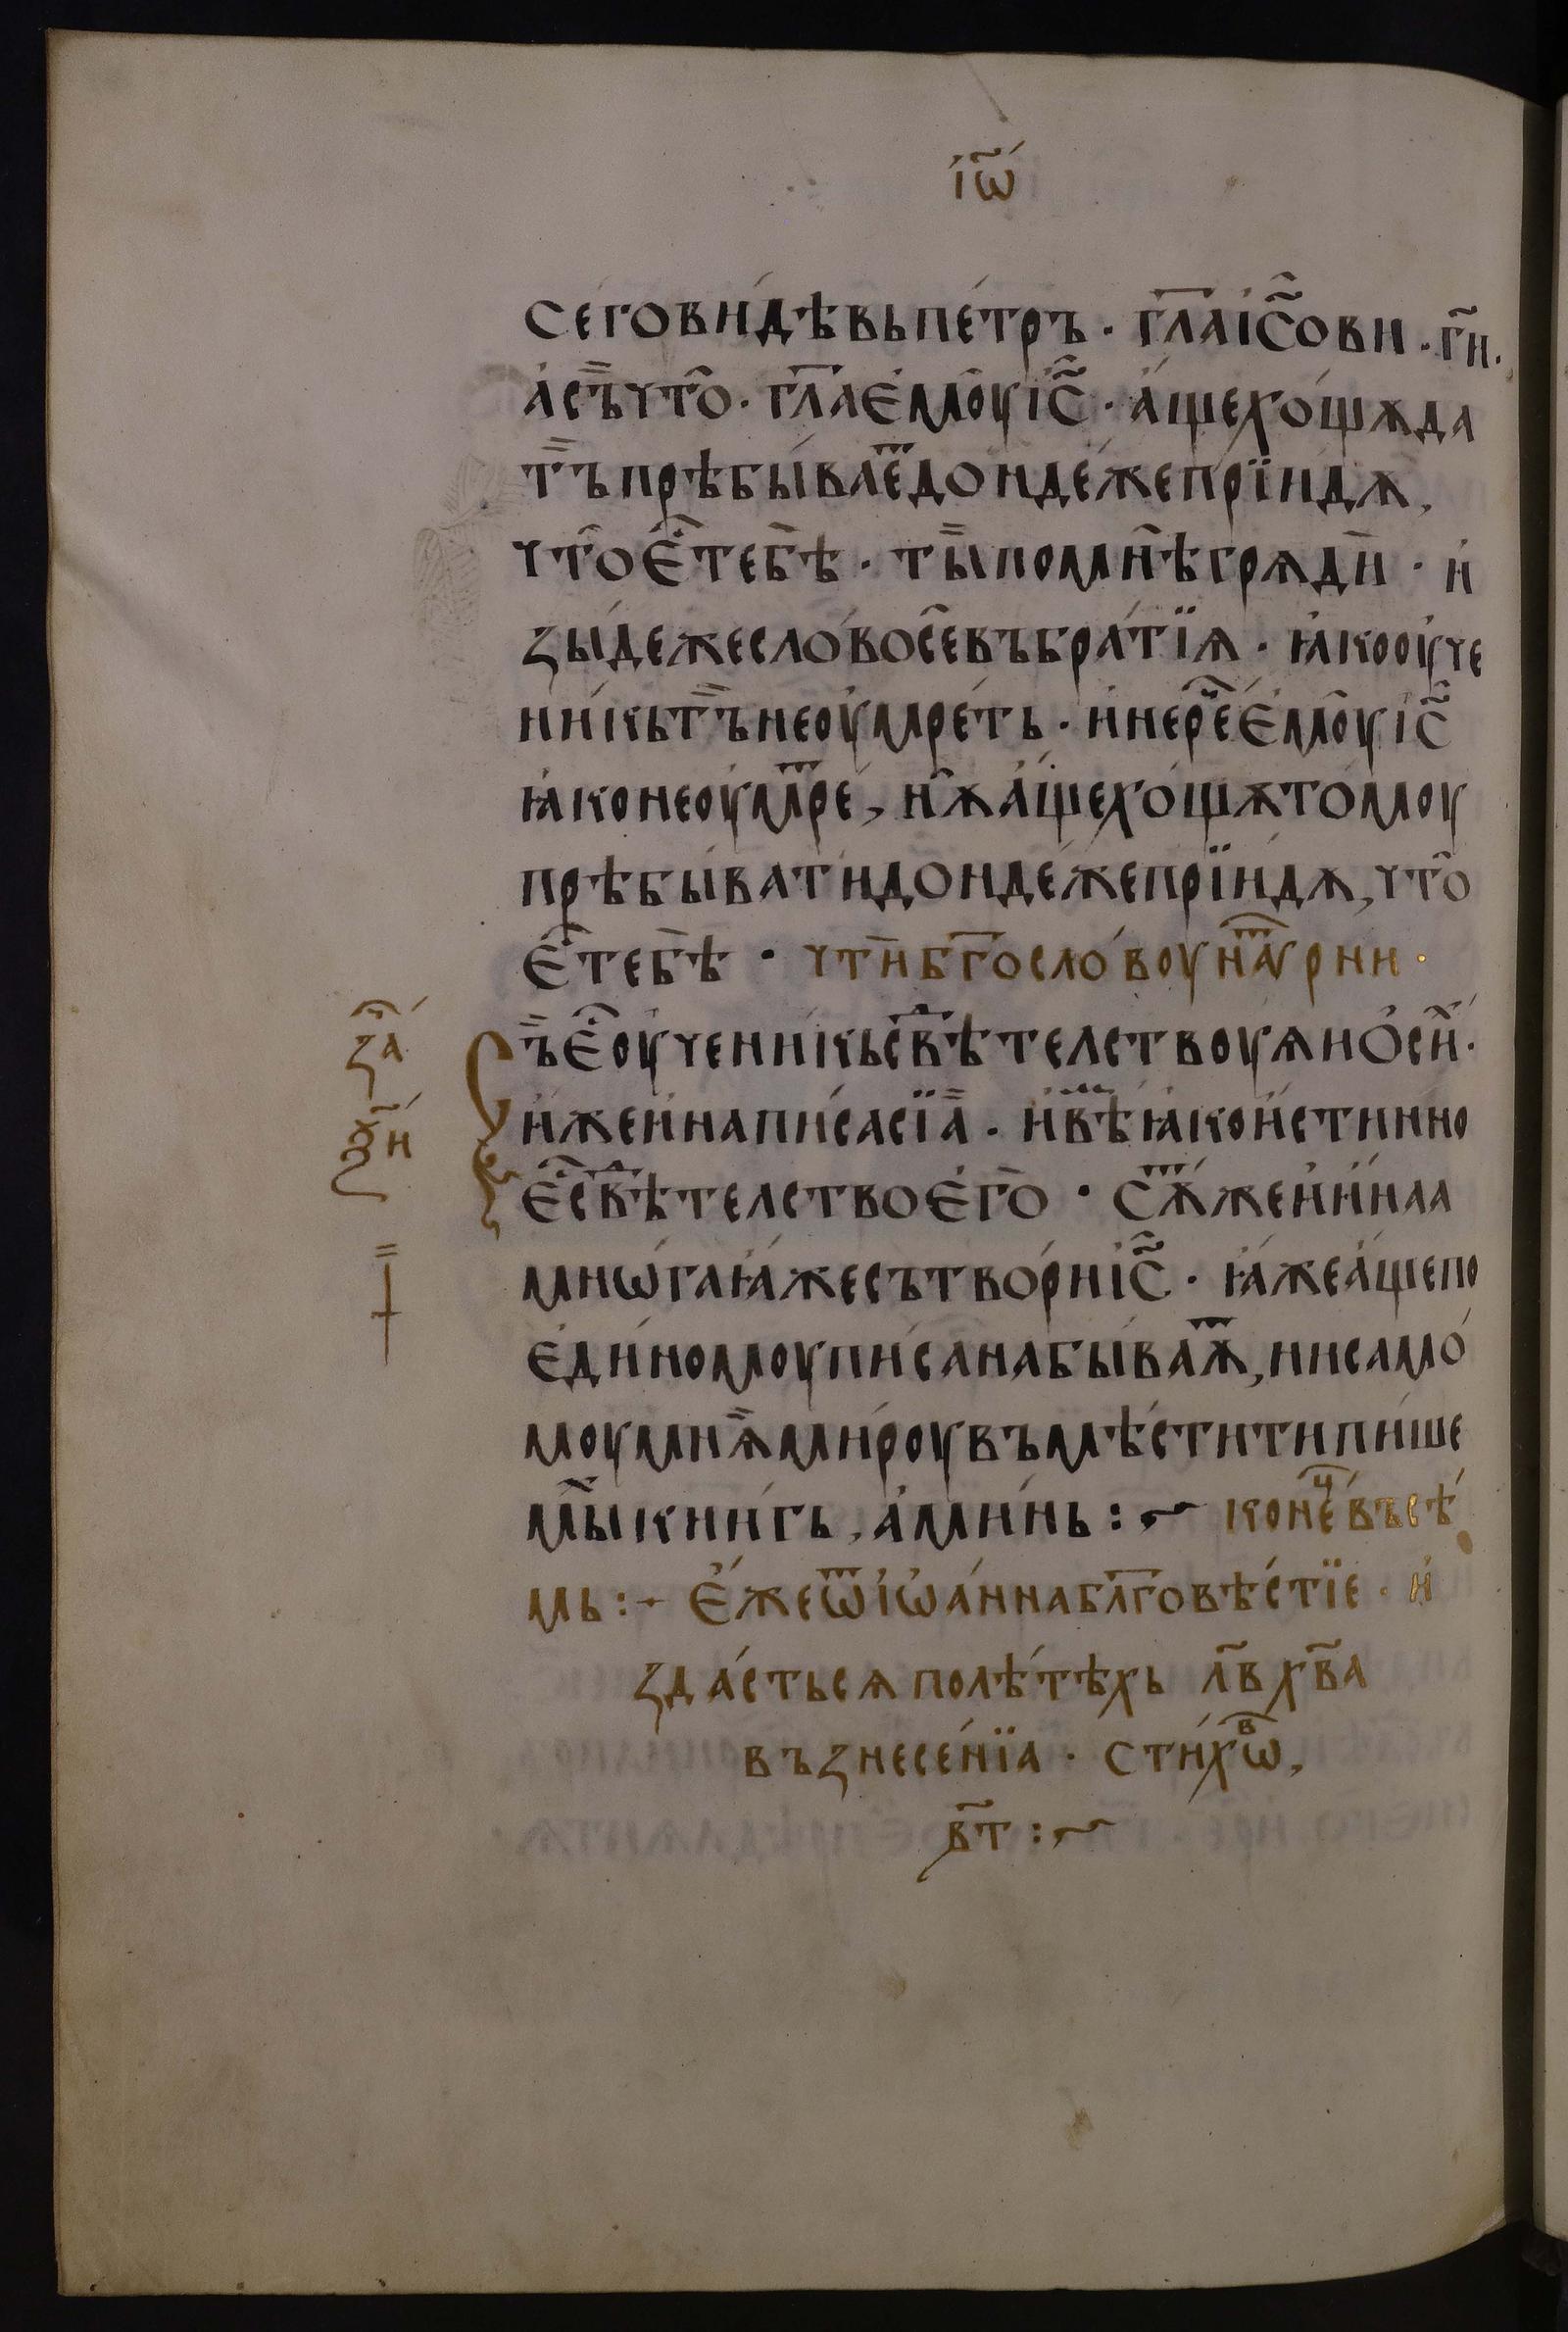 і҆ѡ҃
сегови́дѣвьпе́тръ · гл҃аі҆с҃ови · гн҃·
а҆съ̏что̑ · гл҃ає҆мо̑уі҆с҃ · а҆́щехо́щѫда
тъ̏прѣбы́ває҆ⷮдо́нде́жепрїи́дѫ,
что̑є҆ⷭ҇тебѣ̀ · ты̏помнѣ̀грѧдѝ · и҆
зы́дежесло́восе̑въбра́тїѧ · ꙗ҆кооу҆че
ни́кьтъ̏неоу҆мре́ть · и҆нереⷱ҇є҆мо̑уі҆с҃
ꙗ҆конеоу҆мреⷮ, нѫ̑а҆́щехо́щѫто́моу
прѣбы́ватидо́нде́жепрїи́дѫ, что̑
є҆ⷭ҇тебѣ̀ · чтѝбг҃осло́воунаⷮѵрни ·
ъ̏є҆ⷭ҇оу҆чени́кьсвⷣѣтелствоуѧѝо҆сиⷯ·
и҆́жеи҆написасїа̏ · и҆вѣⷨꙗ҆кои҆́стинно
є҆ⷭ҇свⷣѣтелствоє҆го̀ · сѫⷮжеи҆и҆́наа
мнѡ́гаꙗ҆́жесътво́риі҆с҃ · ꙗ҆́жеа҆́щепо
є҆ди́номоупи́санабы́ваѫⷮ, нисамо́
моумнѧ̏ми́роувъмѣ́ститипи́ше
мы̏кни́гь, а҆ми́нь :~ конеⷰ҇въсѣ́
мь :~ є҆́жеѿі҆ѡ҆а́ннабл҃говѣ́стїе · и҆
зда́стьсѧполѣ́тѣхь л҃в хв҃а
възнесе́нїа · сти́хѡⷡ,
в҃т :~
заⷱ҇
ѯ҃и